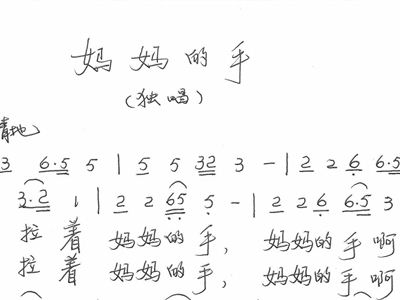 妈妈的手
(独唱)
情地
3 6·5 5 | 5 5 32 3 - | 2 2 6 6·5
3·2 1 | 2 2 65 5 - | 2 2 6 6·5 3
拉着 妈妈的手, 妈妈的手啊
拉着 妈妈的手, 妈妈的手啊